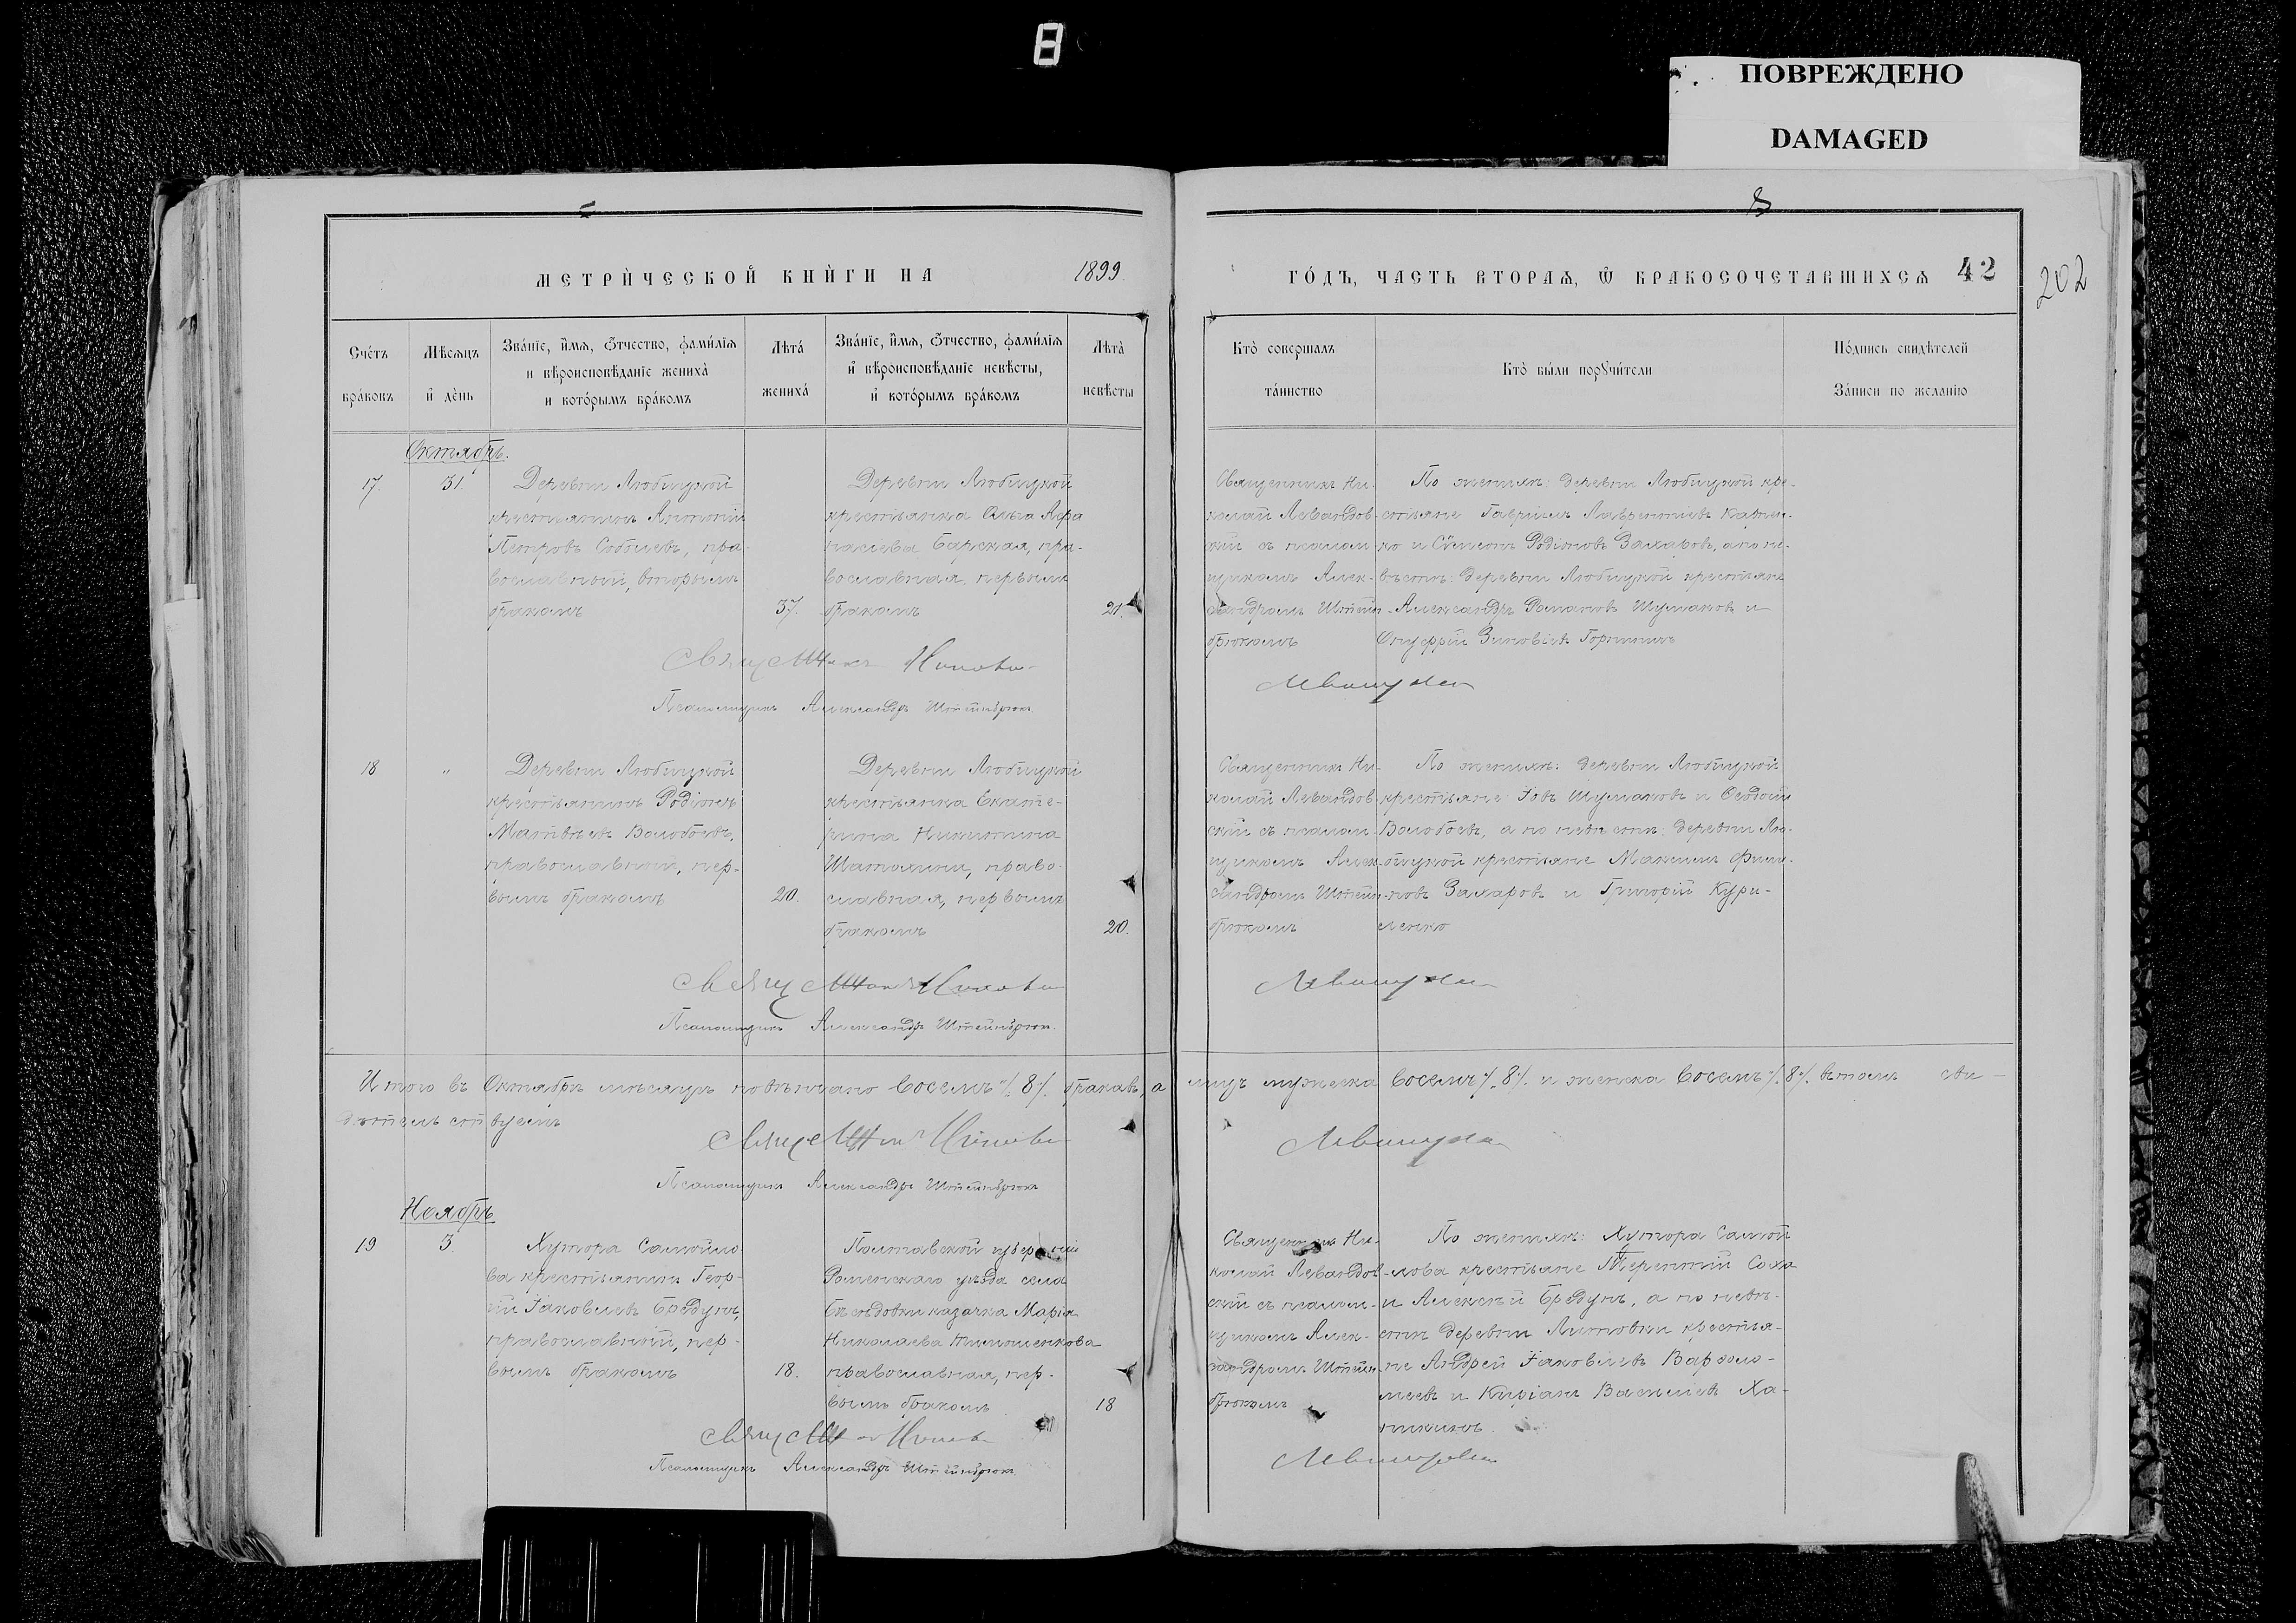 ПОВРЕЖДЕНО
DAMAGED
МЕТРИ́ЧЕСКОЙ КНИ́ГИ НА 1899.
ГО́ДЪ, ЧАСТЬ ВТОРАѦ, Ѿ БРАКОСОЧЕТАВШИХСѦ 42
202
Сче́тъ
бра́ковъ
Мѣсяцъ
и де́нь
Зва́нїе, и́мѧ, ѻ҆́тчество, фами́лїѧ
и вѣроисповѣданїе жениха̀
и кото́рымъ бра́комъ
Лѣта́
жениха́
Зва́нїе, и́мѧ, ѻ҆́тчество, фами́лїѧ
и҆ вѣроисповѣданїе невѣсты,
и҆ кото́рымъ бра́комъ
Лѣта̀
невѣсты
Кто̀ совершалъ
та́инство
Кто̀ бы́ли порꙋчи́тели
По́дпись свидѣтелей
За́писи по желанїю
Октябрь.
17.
31.
Деревни Любицкой
крестьянинъ Антоній
Петровъ Соболевъ, пра-
вославный, вторымъ
бракомъ
37.
Деревни Любицкой
крестьянка Ольга Афа
насіева Барская, пра-
вославная, первымъ
бракомъ
21.
Священникъ Ни-
колай Левандов-
скій съ псалом-
щикомъ Алек-
сандромъ Штейн-
брюкомъ
По женихѣ: деревни Любицкой кре-
стьяне Гавріилъ Лаврентіевъ Карпен-
ко и Сѵмеонъ Родіоновъ Захаровъ, а по не-
вѣстѣ: деревни Любицкой крестьяне
Александръ Романовъ Шумаковъ и
Онуфрій Зиновіевъ
Священникъ Николай
Левандовскій
Псаломщикъ Александръ Штейнбрюкъ.
18
"
Деревни Любицкой
крестьянинъ Родіонъ
Матвѣевъ Волобоевъ,
православный, пер-
вымъ бракомъ
20.
Деревни Любицкой
крестьянка Екате-
рина Никитина
Шатохина, право-
славная, первымъ
бракомъ
20.
Священникъ Ни-
колай Левандов-
скій съ псалом-
щикомъ Алек-
сандромъ Штейн-
брюкомъ
По женихѣ: деревни Любицкой
крестьяне Іовъ Шумаковъ и Ѳеодосій
Волобоевъ, а по невѣстѣ: деревни Лю-
бицкой крестьяне Максимъ Филип-
повъ Захаровъ и Григорій Кури-
ленко
Священникъ Николай
Левандовскій
Псаломщикъ Александръ Штейнбрюкъ.
Итого въ Октябрѣ мѣсяцѣ повѣнчано восемь /.8/. браковъ, а лицъ мужеска восемь /.8/. и женска восемь /.8/. въ томъ сви-
дѣтельствуемъ
Священникъ Николай
Левандовскій
Псаломщикъ Александръ Штейнбрюкъ
Ноябрь
19
3.
Хутора Самойло-
ва крестьянинъ Геор-
гій Іаковлевъ Бредунъ,
православный, пер-
вымъ бракомъ
18.
Полтавской губерніи
Роменскаго уѣзда села
казачка Марія
Николаева Тимошенкова
православная, пер-
вымъ бракомъ
18
Священникъ Ни-
колай Левандов-
скій съ псалом-
щикомъ Алек-
сандромъ Штейн-
брюкомъ
По женихѣ: Хутора Самой-
лова крестьяне Терентій Соха
и Алексѣй Бредунъ, а по невѣ-
стѣ деревни Литовки крестья-
не Андрей Іаковлевъ Варфоло-
меевъ и Кипріанъ Васильевъ
Священникъ Николай
Левандовскій
Псаломщикъ Александръ Штейнбрюкъ.